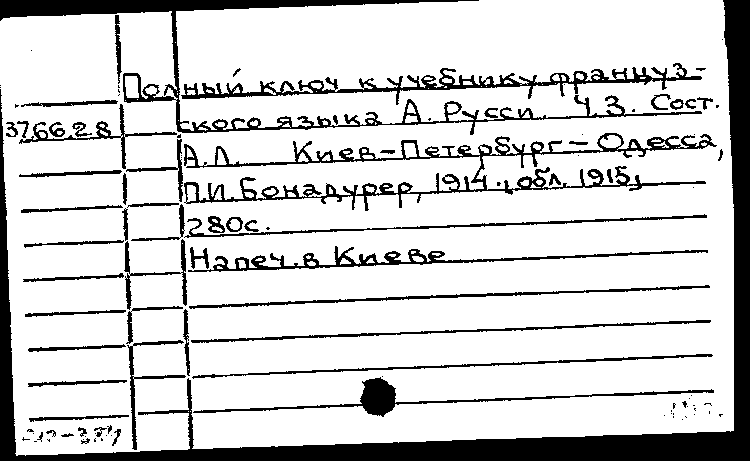 Полный ключ к учебнику француз-
3766.28 ского языка А. Русси. Ч.3. Сост.
А.Л. Киев-Петербург-Одесса,
П.И. Бонадурер, 1914., обл. 1915,
280с.
Напеч. в Киеве